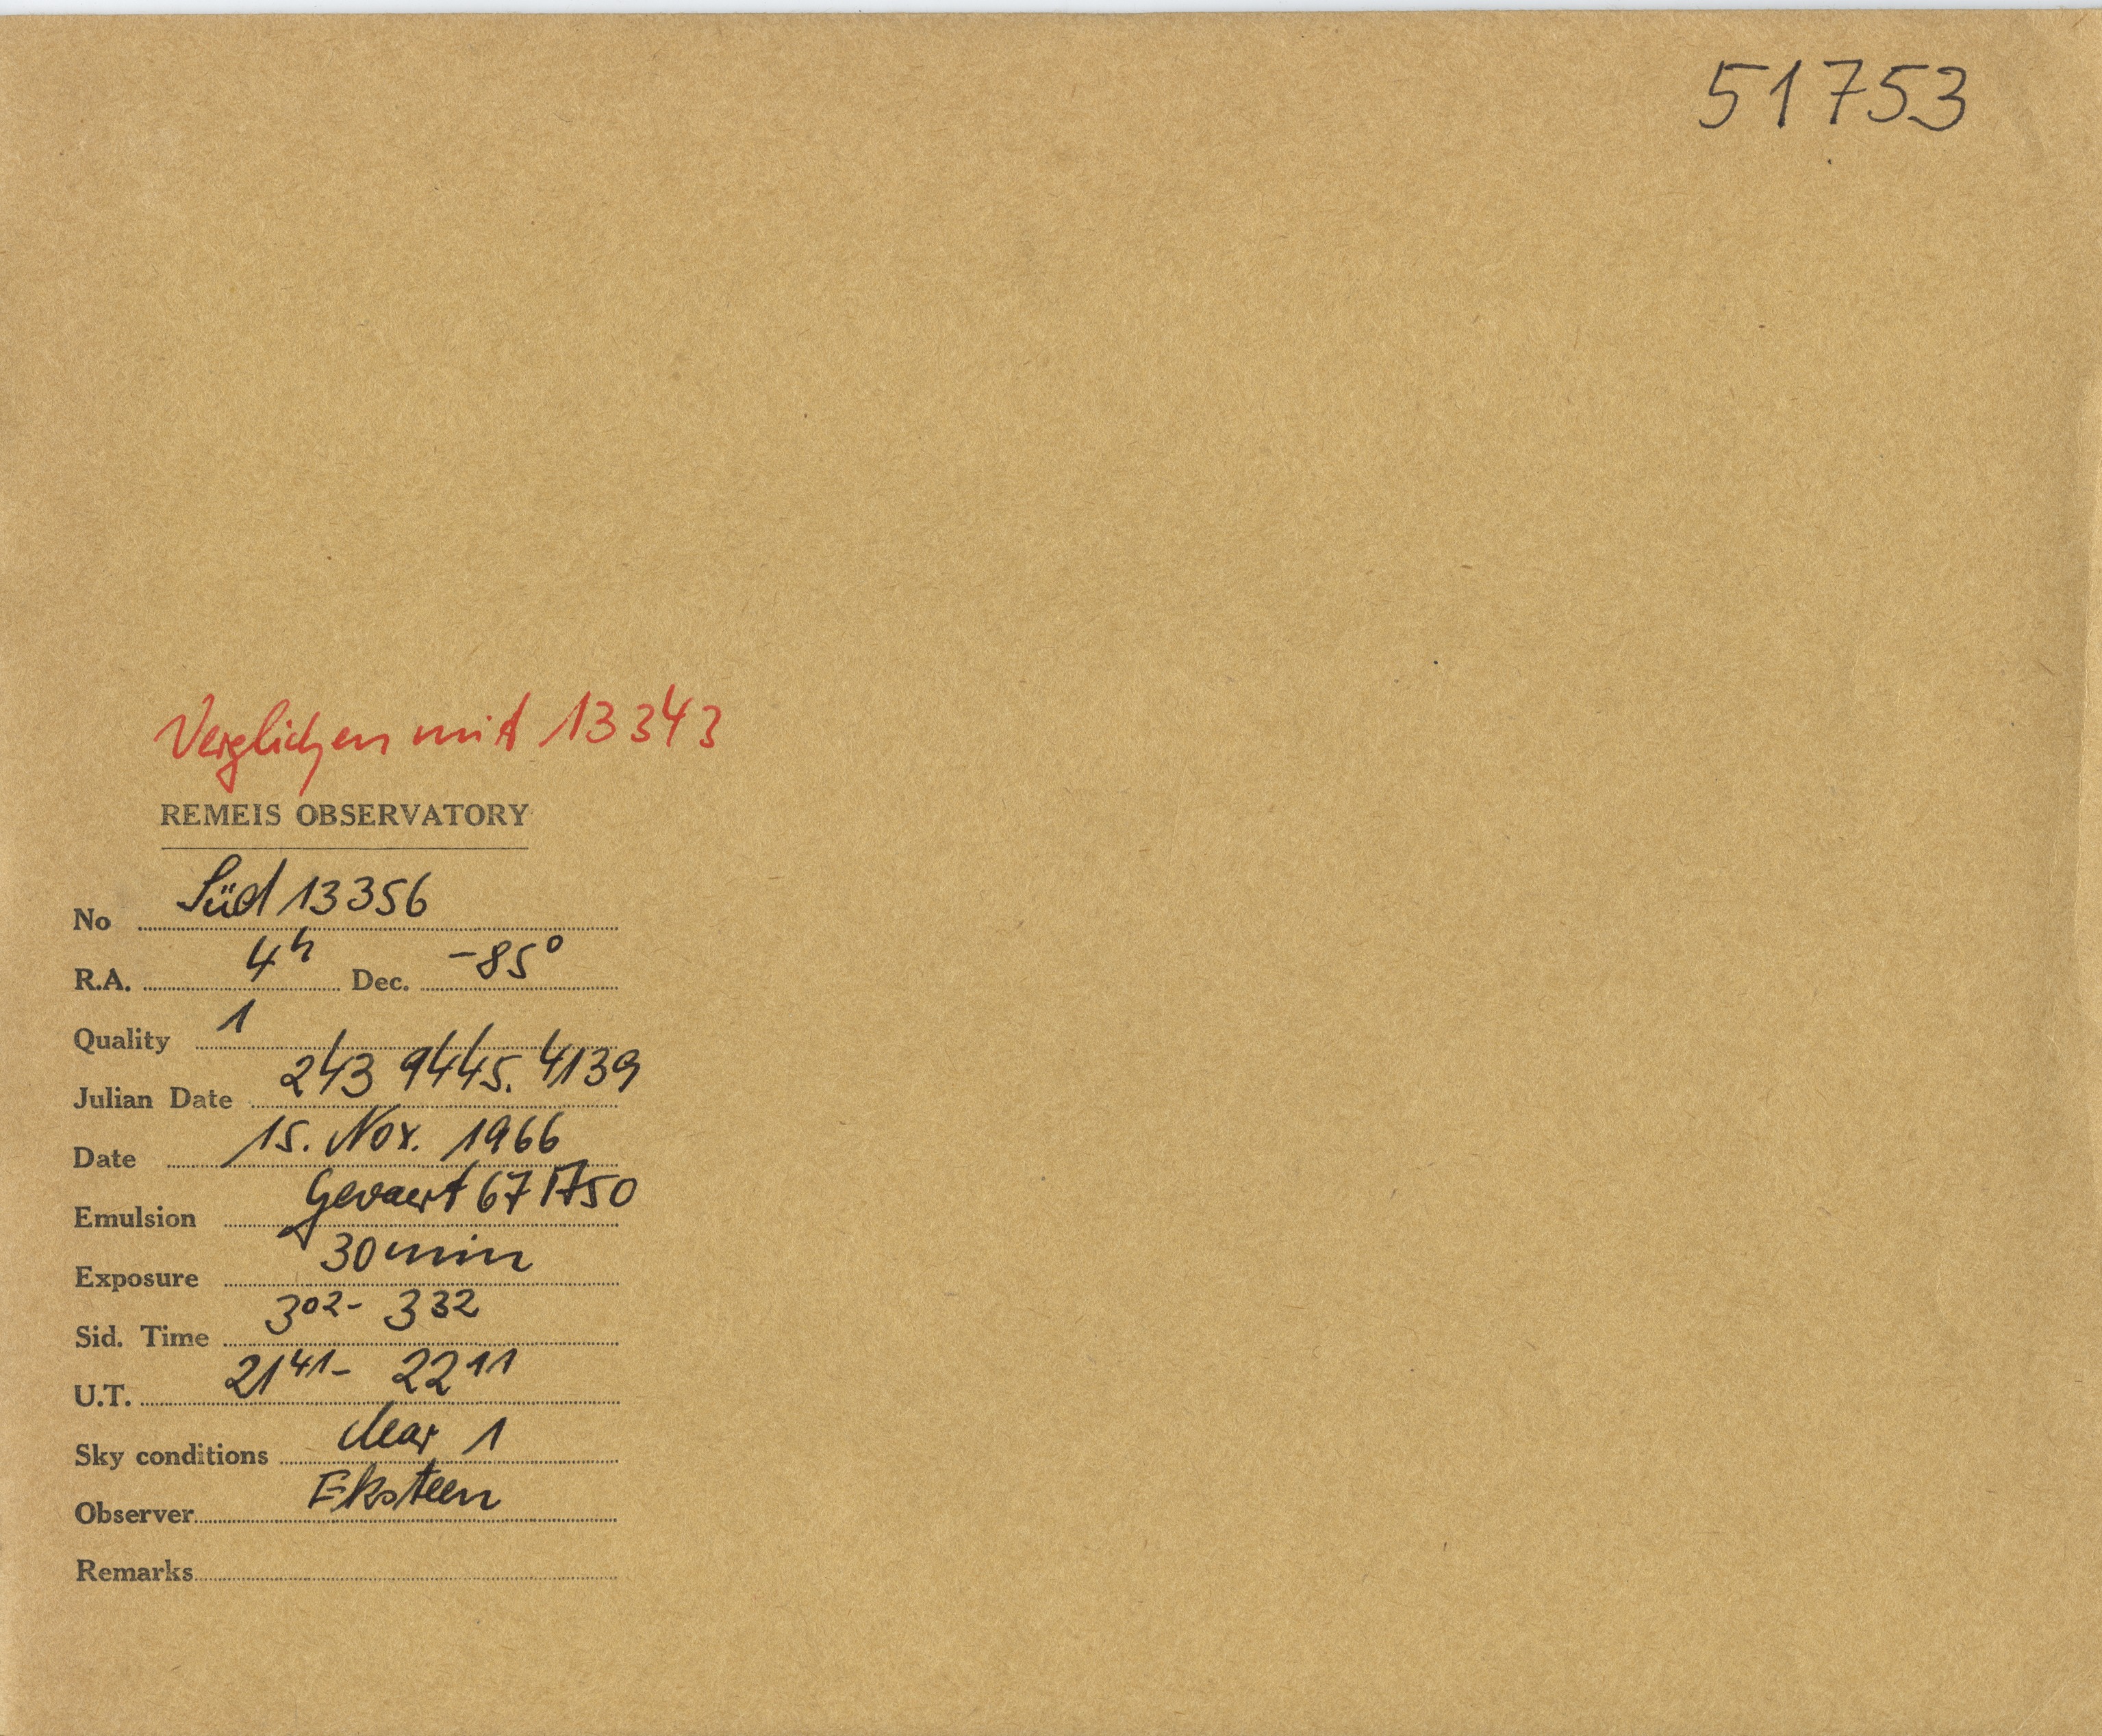 51753
Verglichen mit 13343
REMEIS OBSERVATORY
No Süd 13356
R.A. 4h Dec. -85°
Quality 1
Julian Date 243 9445.4139
Date 15. Nov. 1966
Emulsion Gevaert 67 A50
Exposure 30 min
Sid. Time 3 02 - 3 32
U.T. 21 41 - 22 11
Sky conditions clear 1
Observer Eksteen
Remarks